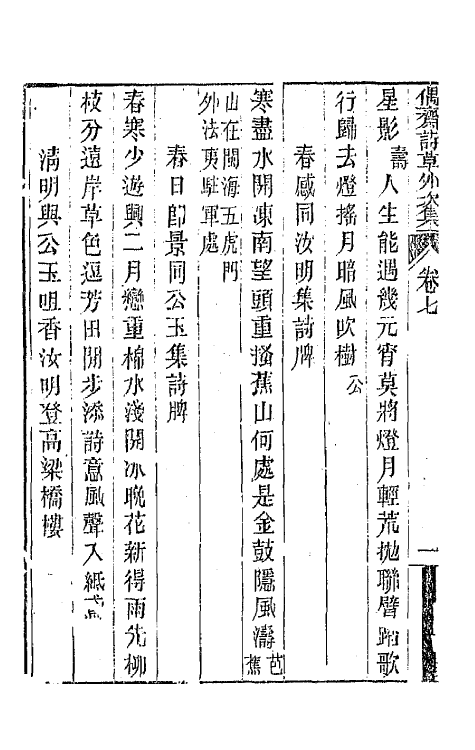 偶齋詩草外次集 卷七 一
星影壽人生能遇幾元宵莫將燈月輕荒拋聯臂踏歌
行歸去燈搖月暗風吹樹公
春感同汝明集詩牌
寒盡水開凍南望頭重搔蕉山何處是金鼓隱風濤芭蕉
山在閩海五虎門
外法夷駐軍處
春日卽景同公玉集詩牌
春寒少遊興二月戀重棉水淺開冰晚花新得雨先柳
枝分遠岸草色逗芳田閒步添詩意風聲入紙鳶
清明與公玉咀香汝明登高梁橋樓